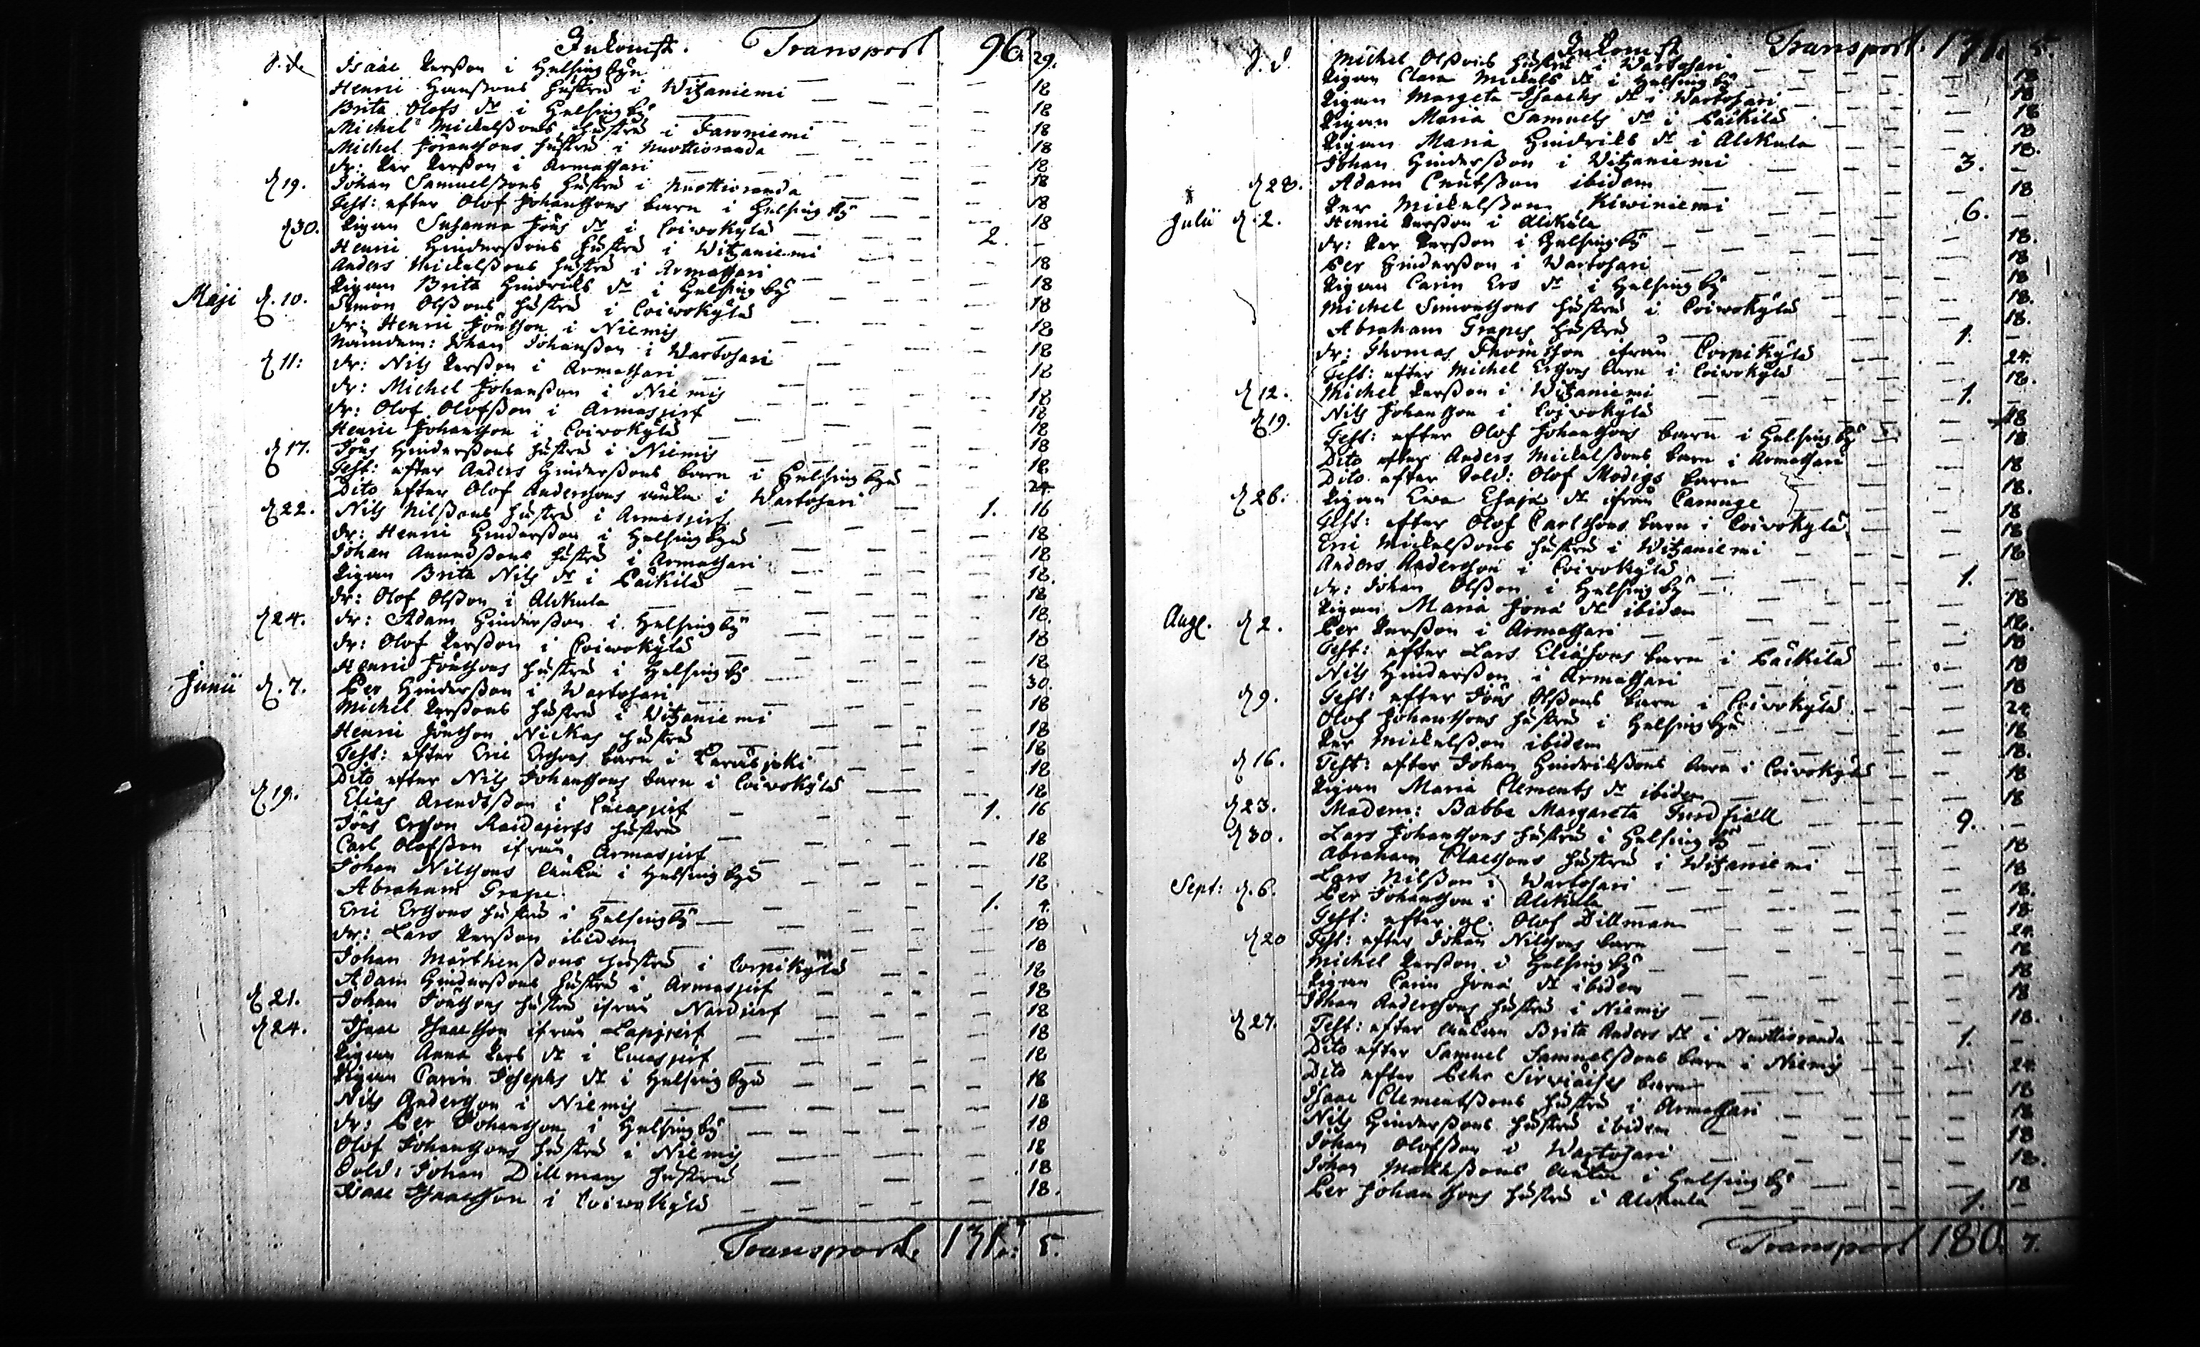 Inkomst. Transport 96. 29.
d. d. Isaac Persson i Helsingbyn
Henric Hanssons hustru i Witzaniemi — 18
Brita Olofs dr i Helsingby — 18
Michel Mickelssons hustru i Jarwniemi — 18
Michel Jöranssons hustru i Nuottioranda — 18
dr: Per Persson i Armassari — 18
d 19. Johan Samuelssons hustru i Nuottioranda — 18
Test: efter Olof Johanssons barn i Helsingby — 18
d 30. Pigan Susanna Jöns dr i Coiwokylä — 18
Henric Hinderssons hustru i Witzaniemi — 2. –
Anders Mickelssons hustru i Armassari — 18
Pigan Brita Hindrichs dr i Helsingby — 18
Maji d. 10. Simon Olssons hustru i Coiwokylä — 18
dr: Henric Jönsson i Niemis — 18
Nämdem: Johan Johansson i Wartosari — 18
d 11: dr: Nils Persson i Armassari — 18
dr: Michel Johansson i Niemis — 18
dr: Olof Olofsson i Armasjerf — 18
Henric Johansson i Coiwokylä — 18
d 17. Jöns Hinderssons hustru i Niemis — 18
Test: efter Anders Hinderssons barn i Helsingbyn — 18
Dito efter Olof Anderssons änka i Wartosari — 24
d 22. Nils Nilssons hustru i Armasjerf — 1. 16
dr: Henric Hindersson i Helsingbyn — 18
Johan Amundssons hustru i Armassari — 18
Pigan Brita Nils dr i Päckilä — 18
dr: Olof Olsson i Alckula — 18
d 24. dr: Adam Hindersson i Helsingby — 18
dr: Olof Persson i Coiwokylä — 18
Henric Jönssons hustru i Helsingby — 18
Junii d. 7. Per Hindersson i Wartosari — 30.
Michel Perssons hustru i Witzaniemi — 18
Henric Jönsson Nickas hustru — 18
Test: efter Eric Erssons barn i — 18
Dito efter Nils Johanssons barn i Coiwokylä — 18
d 19. Elias Arendtsson i Lucasjerf — 1. 16
Jöns Ersson Raidajerfs hustru
Carl Olofsson ifrån Armasjerf — 18
Johan Nilssons änka i Helsingbyn — 18
Abraham Grape — 18
Eric Erssons hustru i Helsingby — 1. 4
dr: Lars Persson ibidem — 18
Johan Mårthenssons hustru i Corpikylä — 18
Adam Hinderssons hustru i Armasjerf — 18
d 21. Johan Jönssons hustru ifrån Nardjerf — 18
d 24. Isaac Isaacsson ifrån Lapjerf — 18
Pigan Anna Pers dr i Lucasjerf — 18
Pigan Carin Josephs dr i Helsingbyn — 18
Nils Andersson i Niemis — 18
dr: Per Johansson i Helsingby — 18
Olof Johanssons hustru i Niemis — 18
Sold: Johan Dillmans hustru — 18
Isaac Isaacsson i Coiwokylä — 18.
Transport. 131: 5.
Inkomst Transport. 131. 5
d. d. Michel Olssons hustru i Wartosari — 18
Pigan Clara Mickels dr i Helsingby — 18
Pigan Margeta Isaachs dr i Wartosari — 18
Pigan Maria Samuels dr i Päckilä — 18
Pigan Maria Hindrichs dr i Alckula — 18.
Johan Hindersson i Witzaniemi — 3. –
d 28. Adam Cnutsson ibidem — 18
Per Mickelsson Kiwiniemi — 6. –
Julii d. 2. Henric Persson i Alckula — 18.
dr: Per Persson i Helsingby — 18
Per Hindersson i Wartosari — 18
Pigan Carin Ers dr i Helsingby — 18.
Michel Simonssons hustru i Coiwokylä — 18.
Abraham Grapes hustru — 1. –
dr: Thomas Thomsson ifrån Corpikylä — 24.
Test: efter Michel Erssons barn i Coiwokylä — 18.
d 12. Michel Persson i Witzaniemi — 1. –
d 19. Nils Johansson i Coiwokylä — 18
Test: efter Olof Johanssons barn i Helsingby — 18
Dito efter Anders Mickelssons barn i Armassari — 18
Dito efter Sold: Olof Modigs barn — 18.
d 26: Pigan Ewa Esaja dr ifrån — 18
Test: efter Olof Carlssons barn i Coiwokylä — 18
Eric Mickelssons hustru i Witzaniemi — 18
Anders Andersson i Coiwokylä — 1. –
dr: Johan Olsson i Helsingby — 18
Pigan Maria Jona dr ibidem — 18.
Aug. d 2. Per Persson i Armassari — 18
Test: efter Lars Eliassons barn i Päckilä — 18
Nils Hindersson i Armassari — 18
d 9. Test: efter Jöns Olssons barn i Coiwokylä — 24.
Olof Johanssons hustru i Helsingbyn — 18
Per Mickelsson ibidem — 18.
d 16. Test: efter Johan Hindrichssons barn i Coiwokylä — 18
Pigan Maria Clements dr ibidem — 18
d 23. Madem: Babba Margareta — 9. –
d 30. Lars Johanssons hustru i Helsingby — 18
Abraham Claessons hustru i Witzaniemi — 18
Lars Nilsson i Wartosari — 18.
Sept: d. 6. Per Johansson i Alckula — 18.
Test: efter gl: Olof Dillman — 24
d 20 Test: efter Johan Nilssons barn — 18
Michel Persson i Helsingby — 18
Pigan Carin Jona dr ibidem — 18
Johan Anderssons hustru i Niemis — 18.
d 27. Test: efter änkan Brita Anders dr i Nuottioranda — 1. –
Dito efter Samuel Samuelssons barn i Niemis — 24.
Dito efter Pehr barn — 18
Isaac Clementssons hustru i Armassari — 18
Nils Hinderssons hustru ibidem — 18
Johan Olofsson i Wartosari — 18.
Johan änka i Helsingby — 18
Per Johanssons hustru i Alckula — 1. –
Transport 180. 7.